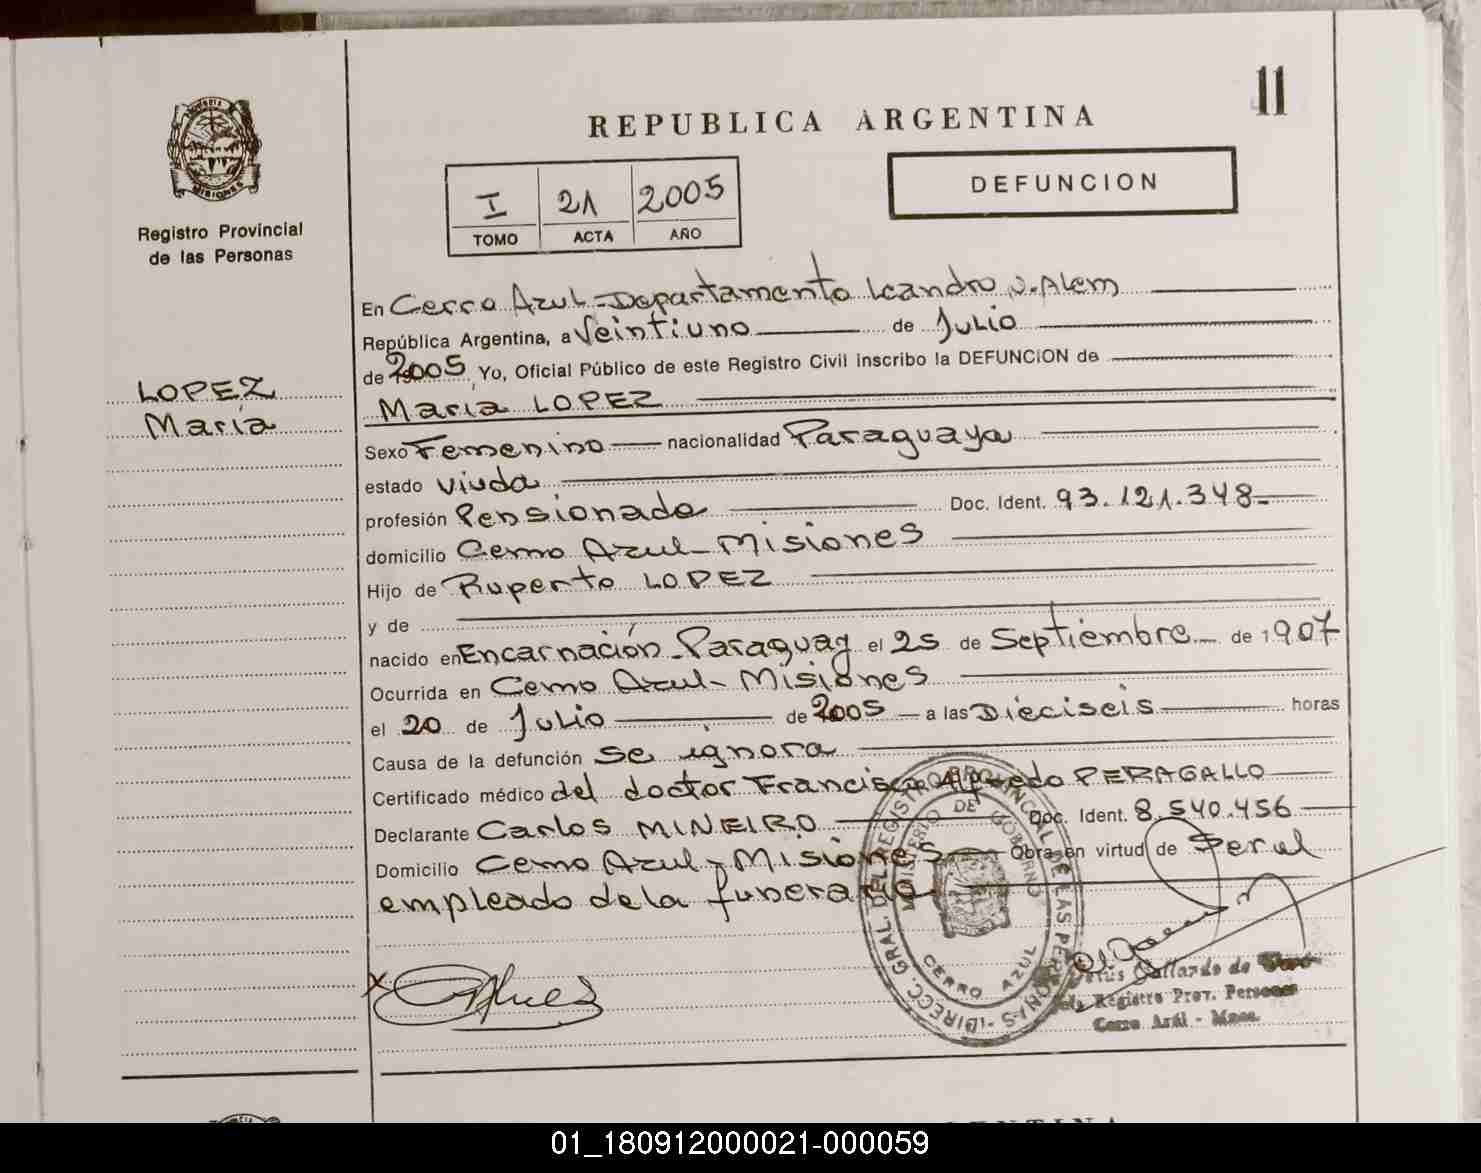 11
REPUBLICA ARGENTINA
MISIONES
Registro Provincial
de las Personas
I 21 2005
TOMO ACTA AÑO
DEFUNCION
LOPEZ
María
En Cerro Azul - Departamento Leandro N. Alem
República Argentina, a Veintiuno de Julio
de 2005, Yo, Oficial Público de este Registro Civil inscribo la DEFUNCION de
María LOPEZ
Sexo Femenino nacionalidad Paraguaya
estado viuda
profesión Pensionada Doc. Ident. 93.121.348
domicilio Cerro Azul - Misiones
Hijo de Ruperto LOPEZ
y de
nacido en Encarnación - Paraguay el 25 de Septiembre de 1907
Ocurrida en Cerro Azul - Misiones
el 20 de Julio de 2005 a las Dieciseis horas
Causa de la defunción Se ignora
Certificado médico del doctor Francisco Alfredo PERAGALLO
Declarante Carlos MINEIRO Doc. Ident. 8.540.456
Domicilio Cerro Azul - Misiones Obra en virtud de Ser el
empleado de la funeraria
DIRECC. GRAL. DEL REGISTRO PROVINCIAL DE LAS PERSONAS
MINISTERIO DE GOBIERNO
CERRO AZUL
Gallardo de
Registro Prov. Personas
Cerro Azúl - Mnes.
01_180912000021-000059